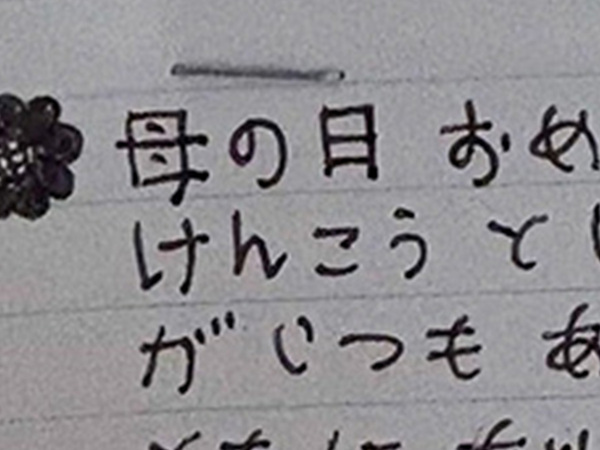 母の日 おめ
けんこう と
がいつも あ